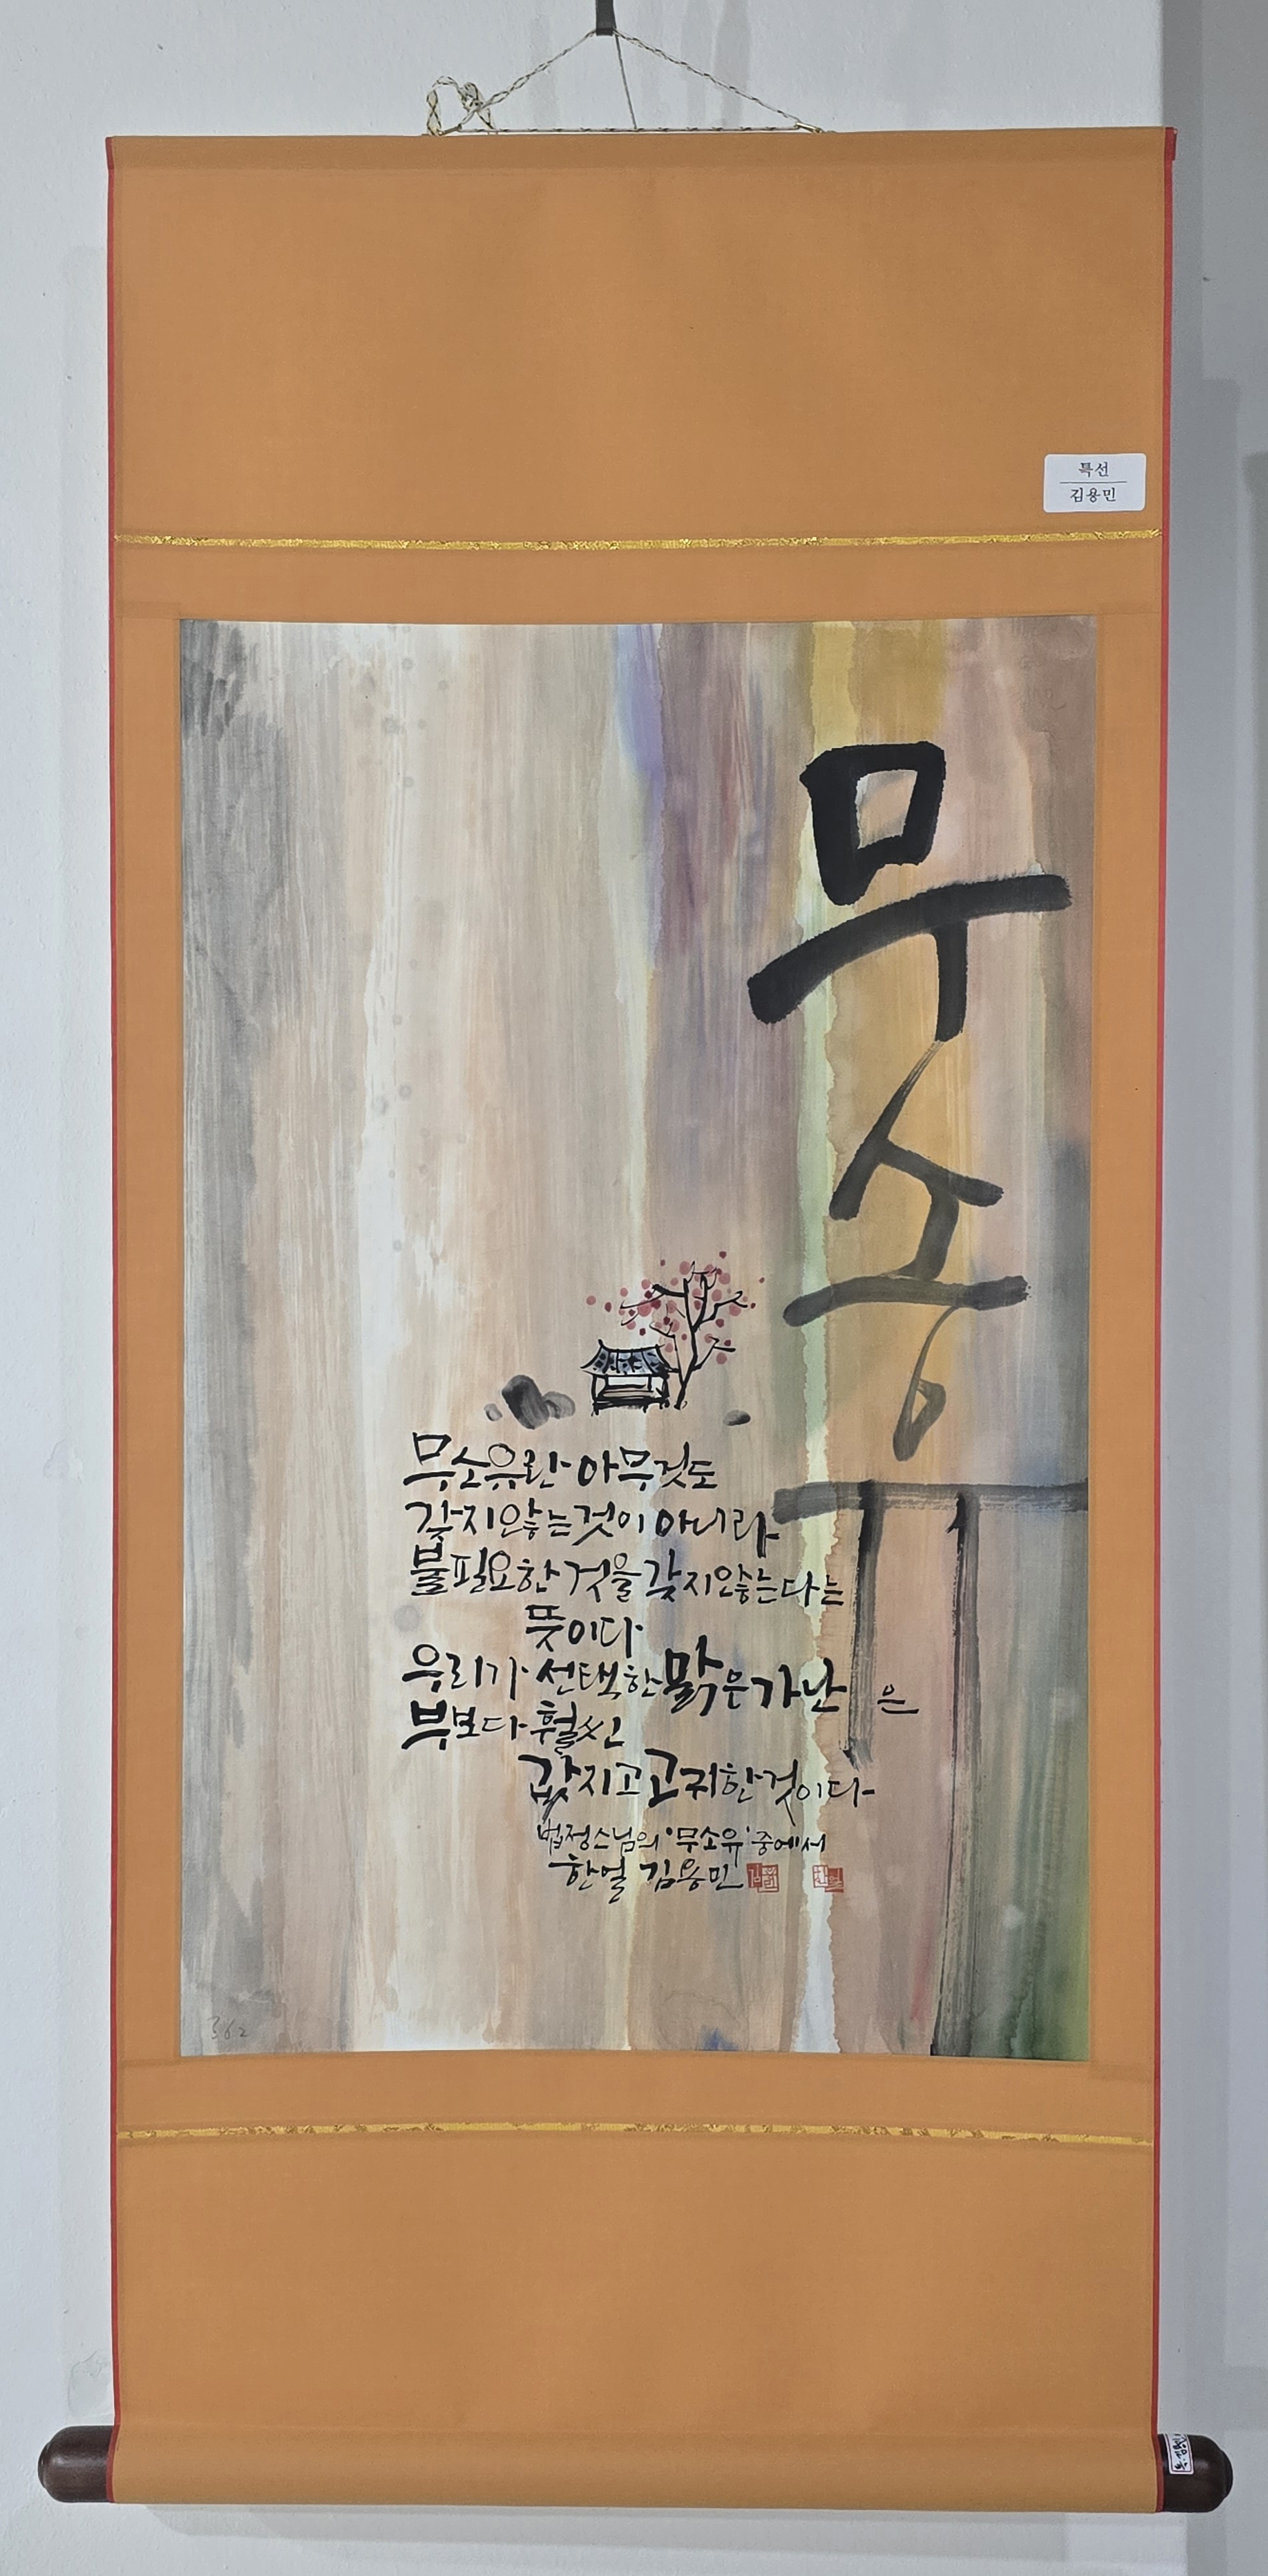 특선
김용민
무소유
무소유란 아무것도
갖지않는것이 아니라
불필요한 것을 갖지않는다는
뜻이다
우리가 선택한 맑은 가난은
부보다 훨씬
값지고 고귀한 것이다
법정스님의 '무소유' 중에서
한얼 김용민
362